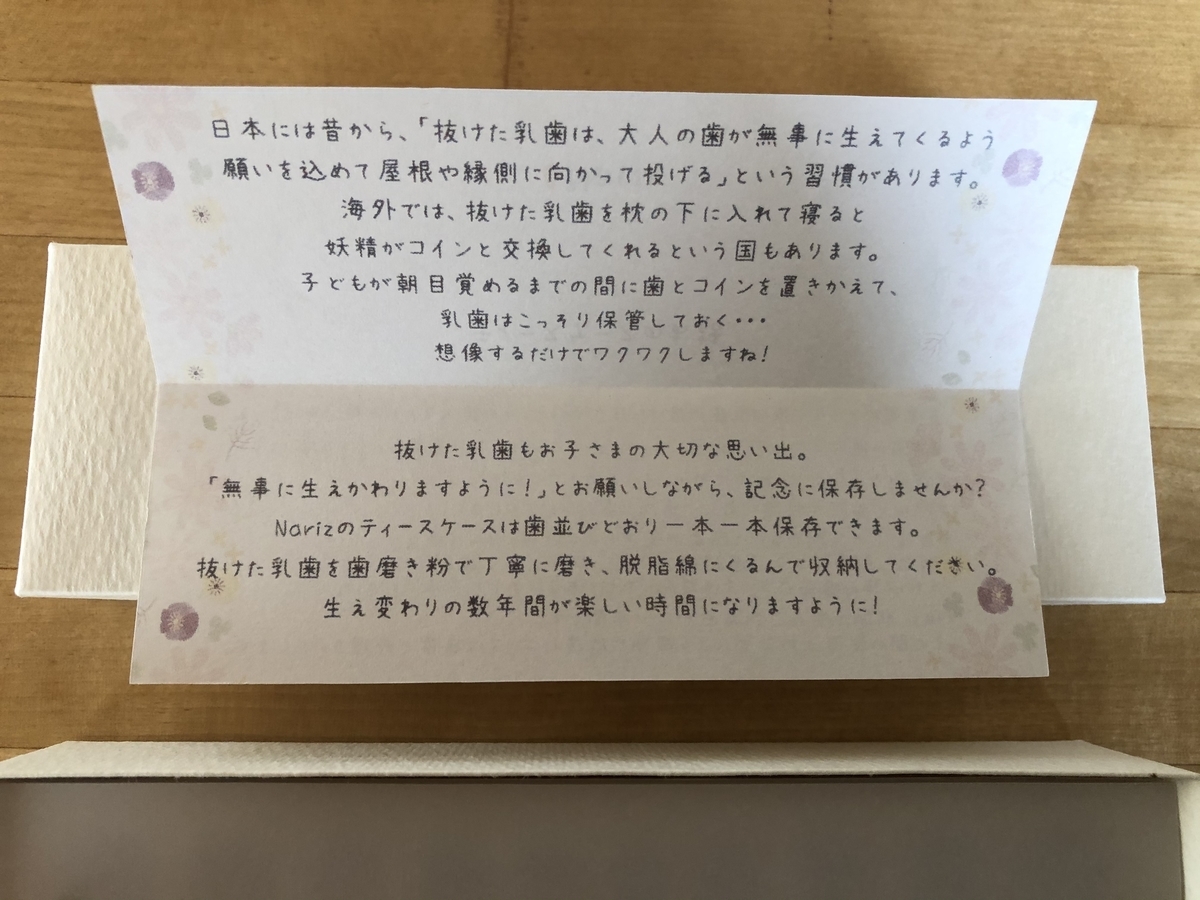 日本には昔から、「抜けた乳歯は、大人の歯が無事に生えてくるよう
願いを込めて屋根や縁側に向かって投げる」という習慣があります。
海外では、抜けた乳歯を枕の下に入れて寝ると
妖精がコインと交換してくれるという国もあります。
子どもが朝目覚めるまでの間に歯とコインを置きかえて、
乳歯はこっそり保管しておく・・・
想像するだけでワクワクしますね!
抜けた乳歯もお子さまの大切な思い出。
「無事に生えかわりますように!」とお願いしながら、記念に保存しませんか?
Narizのティースケースは歯並びどおり一本一本保存できます。
抜けた乳歯を歯磨き粉で丁寧に磨き、脱脂綿にくるんで収納してください。
生え変わりの数年間が楽しい時間になりますように!